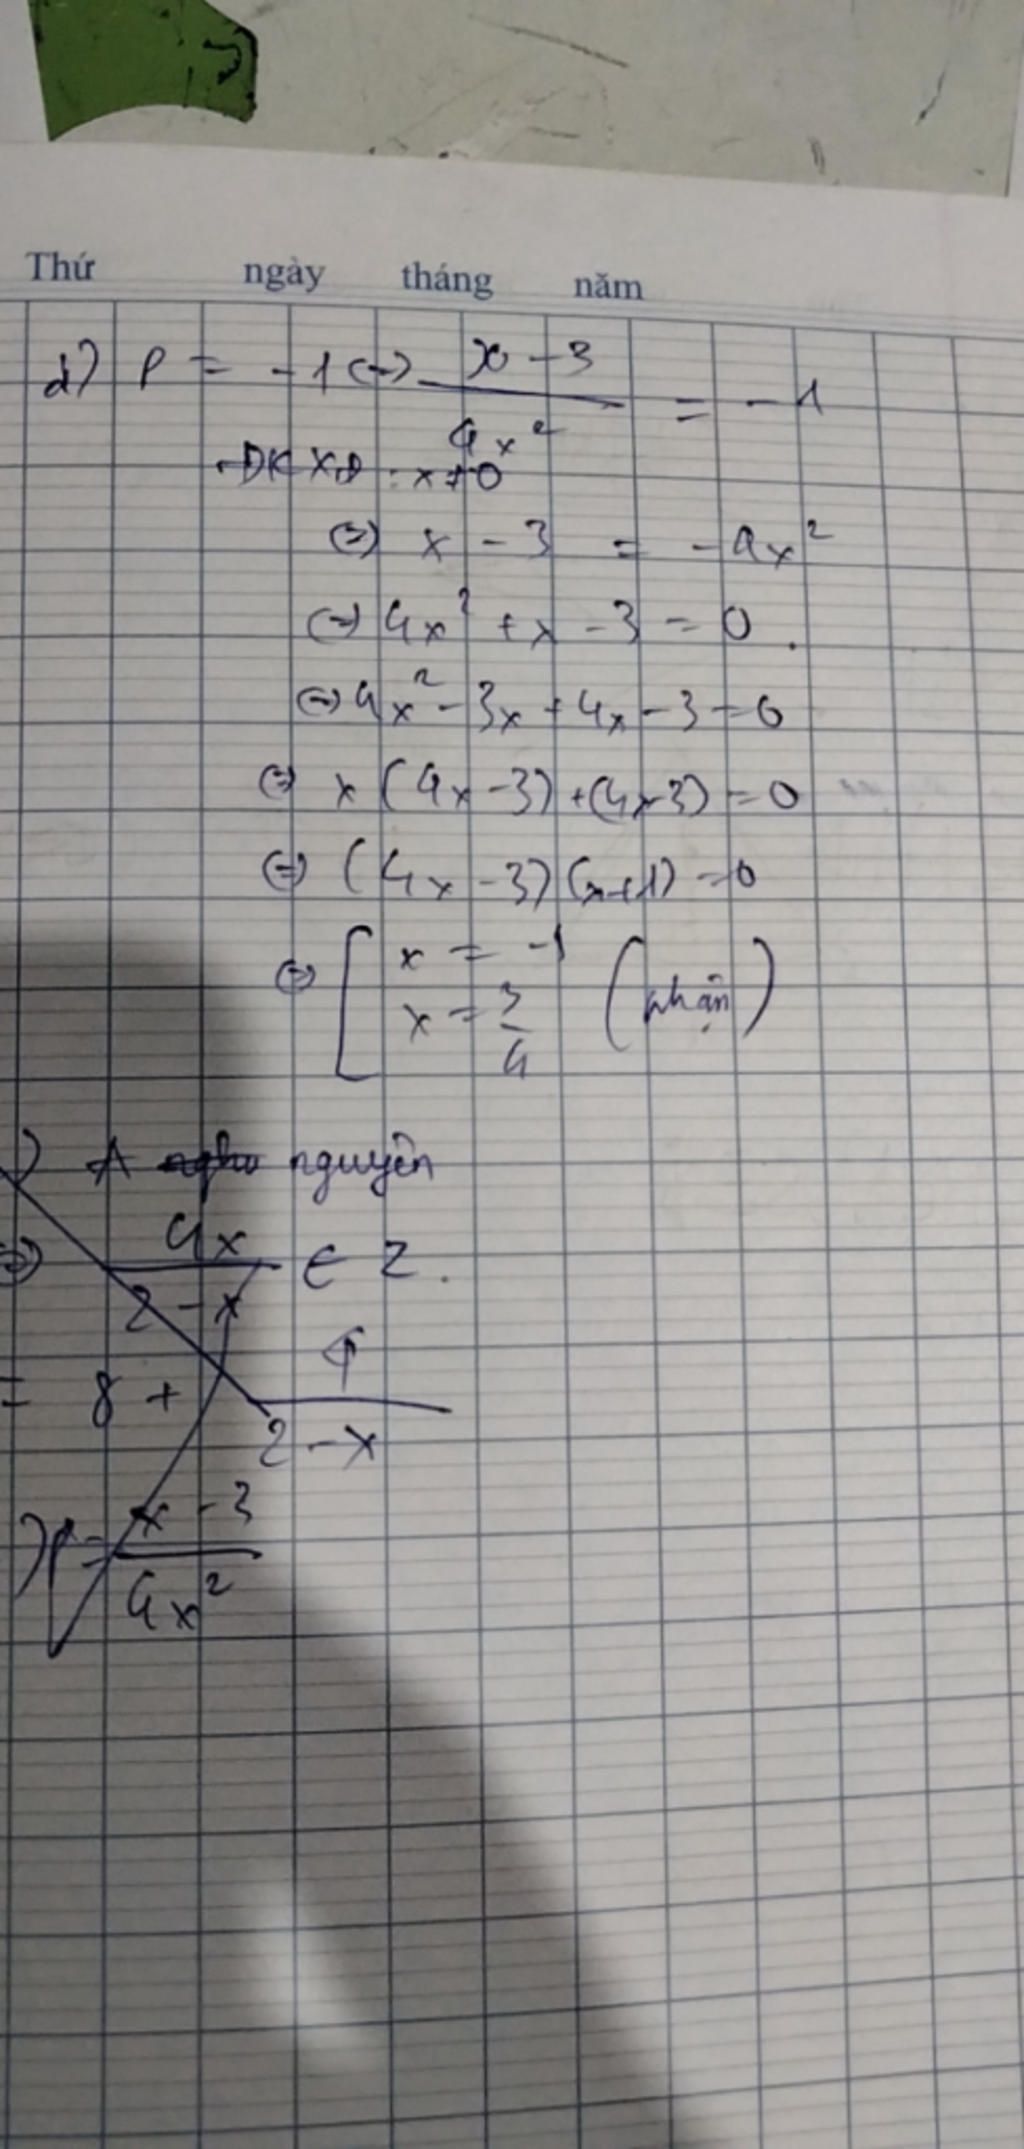 Thứ ngày tháng năm
d) P = -1 (=) x - 3 / 4x² = -1
ĐKXĐ : x ≠ 0
(=) x - 3 = -4x²
(=) 4x² + x - 3 = 0.
(=) 4x² - 3x + 4x - 3 = 0
(=) x (4x - 3) + (4x - 3) = 0
(=) (4x - 3) (x + 1) = 0
(=) [ x = -1
x = 3/4 (nhận)
) A nguyên
(=) 4x / 2 - x ∈ Z.
= 8 + 4 / 2 - x
) P = x - 3 / 4x²